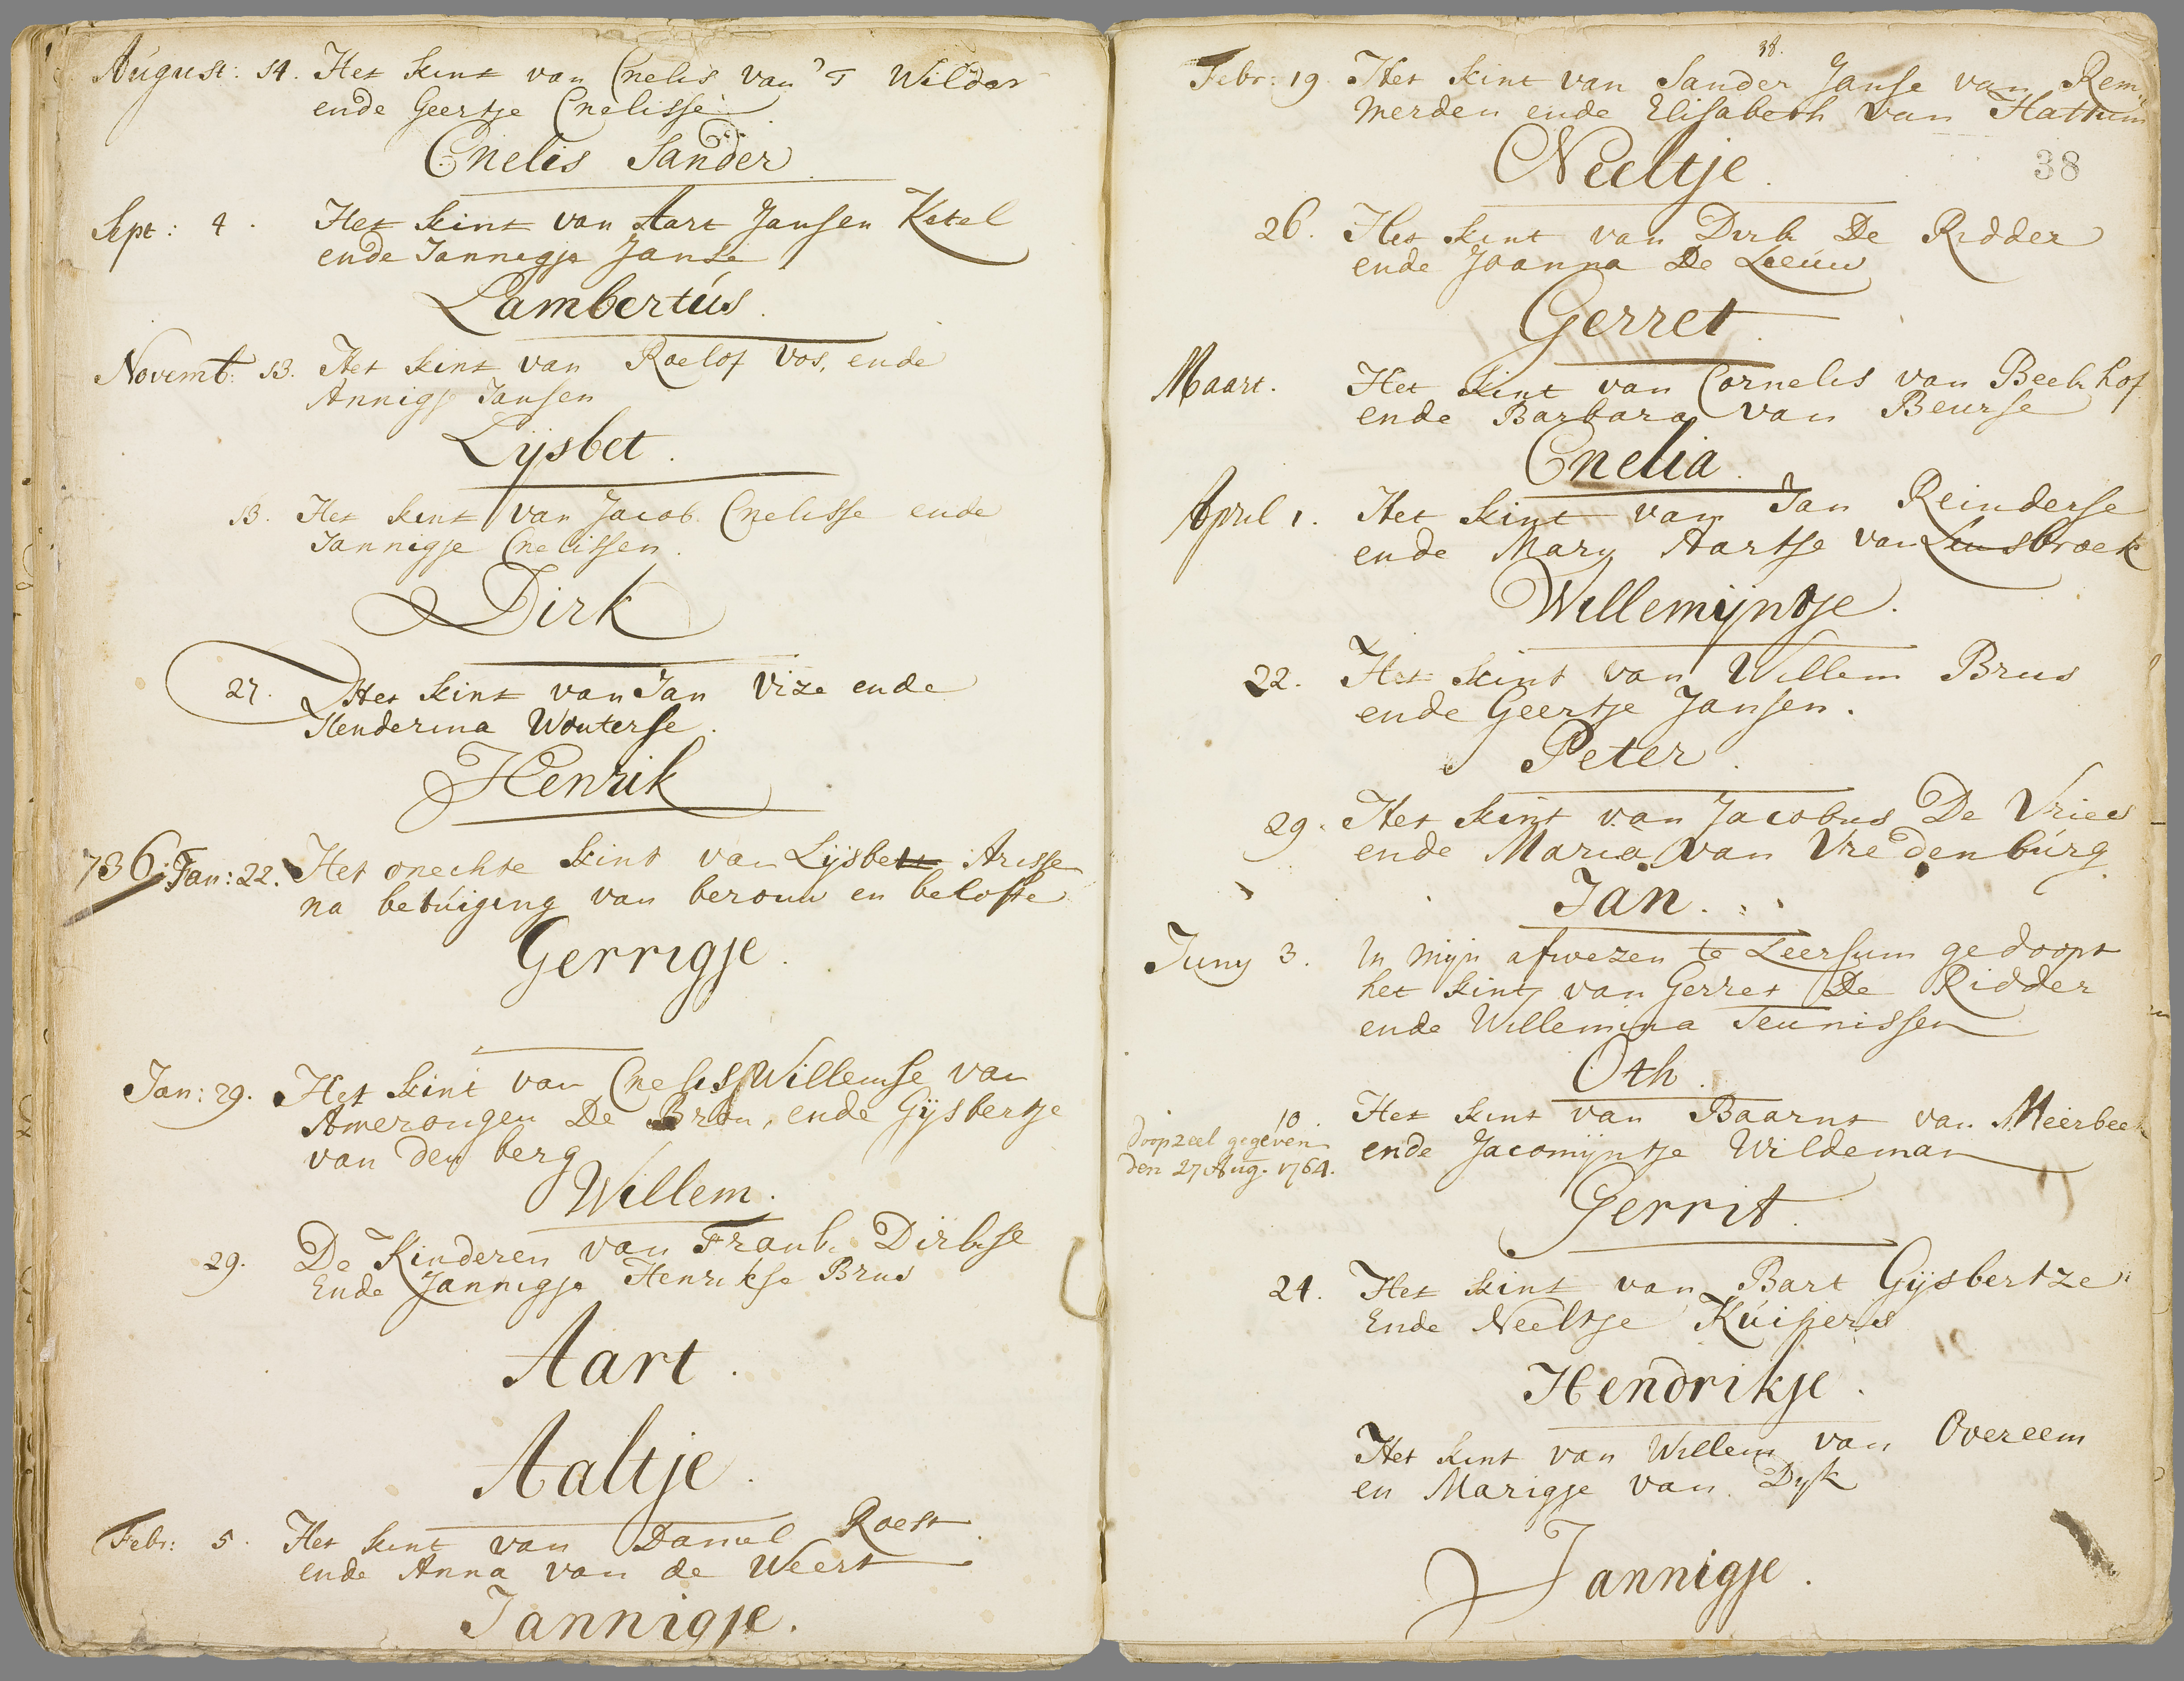 August: 14. Het kint van Cnelis van 'T Wilder
ende Geertje Cnelisse
Cnelis Sander
Sept: 4. Het kint van Aart Jansen Ketel
ende Jannegje Janse
Lambertús.
Novemb: 13. Het kint van Roelof Vos, ende
Annigje Jansen
Lijsbet.
13. Het kint van Jacob Cnelisse ende
Jannigje Cnelissen.
Dirk
27. Het kint van Jan Vize ende
Henderina Wouterse.
Henrik
736. Jan: 22. Het onechte kint van Lijsbet Arisse
na betúiging van berouw en belofte
Gerrigje.
Jan: 29. Het kint van Cnelis Willemse van
Amerongen De Bron, ende Gijsbertje
van den berg
Willem.
29. De Kinderen van Frank Dirkse
Ende Jannigje Henrikse Brus
Aart.
Aaltje.
Febr: 5. Het kint van Daniel Roest.
ende Anna van de Weert
Jannigje.
38.
Febr: 19. Het kint van Sander Janse van Rem,,
merden ende Elisabeth van Hattum
Neeltje.
38
26. Het kint van Dirk De Ridder
ende Joanna De Leeúw
Gerret.
Maart. Het kint van Cornelis van Beekhof
ende Barbara van Beurse
Cnelia.
April 1. Het kint van Jan Reinderse
ende Mary Aartse van Leusbroek
Willemijntje.
22. Het kint van Willem Brus
ende Geertje Jansen.
Peter.
29. Het kint van Jacobus De Vries
ende Maria van Vredenbúrg.
Jan.
Juny 3. In mijn afwezen te Leersum gedoopt
het kint van Gerret De Ridder
ende Willemina Teunissen
Oth.
10. Het kint van Baarnt van Meerbeek
doopzeel gegeven
den 27 Aug. 1764.
ende Jacomijntje Wildeman
Gerrit.
24. Het kint van Bart Gijsbertze
Ende Neeltje Kúipers
Hendrikje.
Het kint van Willem van Overeem
en Marigje van Dyk
Jannigje.